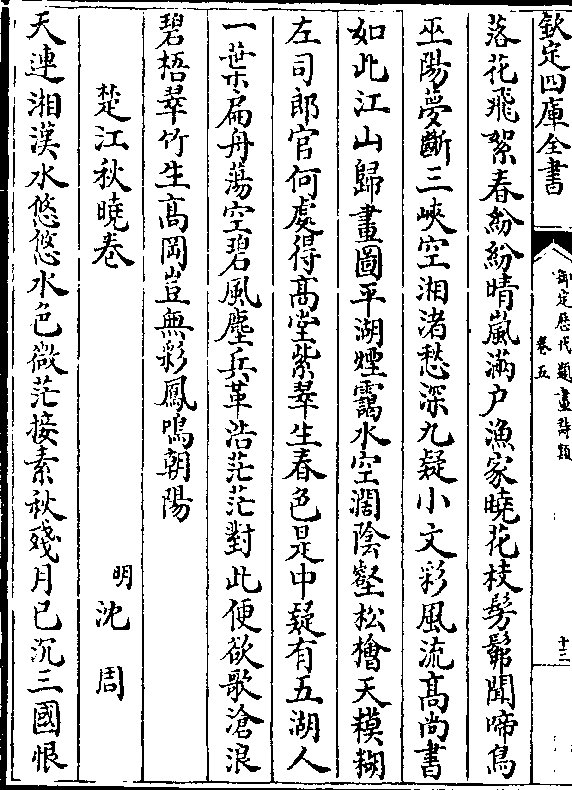 欽定四庫全書
御定歷代題畫詩類
卷五
十三
落花飛絮春紛紛晴嵐滿户漁家曉花枝髣髴聞啼鳥
巫陽夢斷三峽空湘渚愁深九疑小文彩風流髙尚書
如此江山歸畫圖平湖煙靄水空濶陰壑松檜天模糊
左司郎官何處得髙堂紫翠生春色是中疑有五湖人
一葉扁舟蕩空碧風塵兵革浩茫茫對此便欲歌滄浪
碧梧翠竹生髙岡豈無彩鳳鳴朝陽
楚江秋曉卷
明沈周
天連湘漢水悠悠水色微茫接素秋殘月已沉三國恨